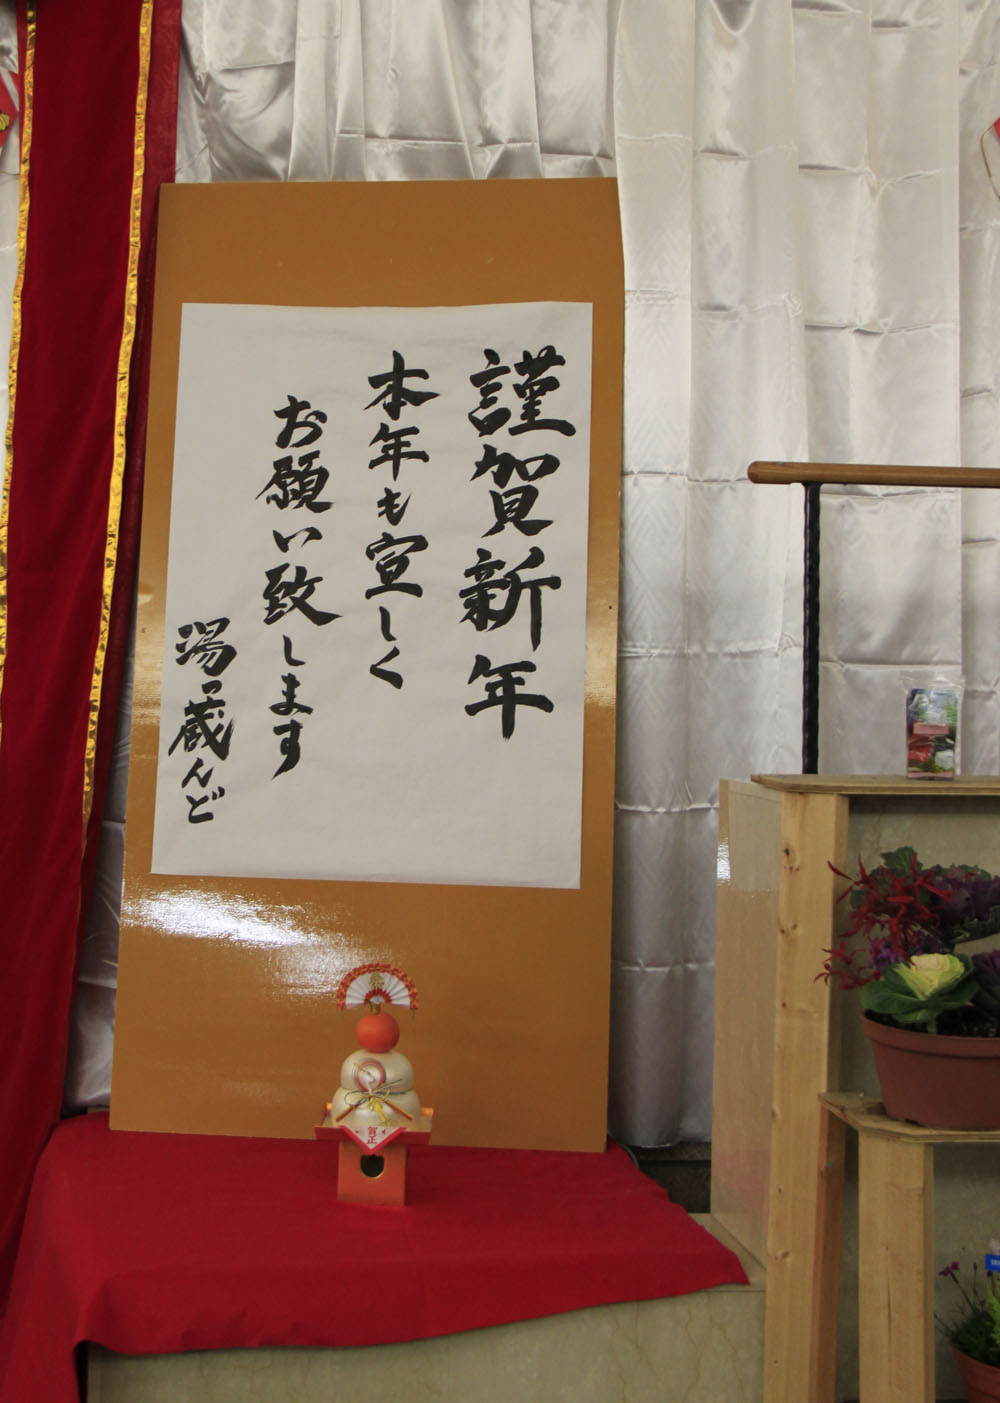 謹賀新年
本年も宜しく
お願い致します
湯っ蔵んど
賀正